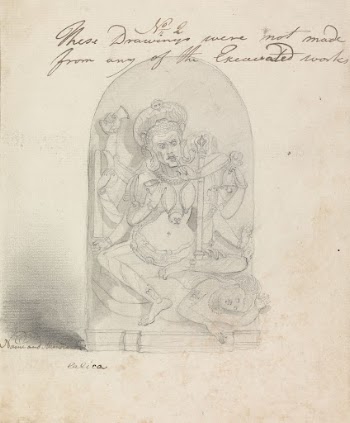 No. 2
These Drawings were not made
from any of the Excavated works
Name and